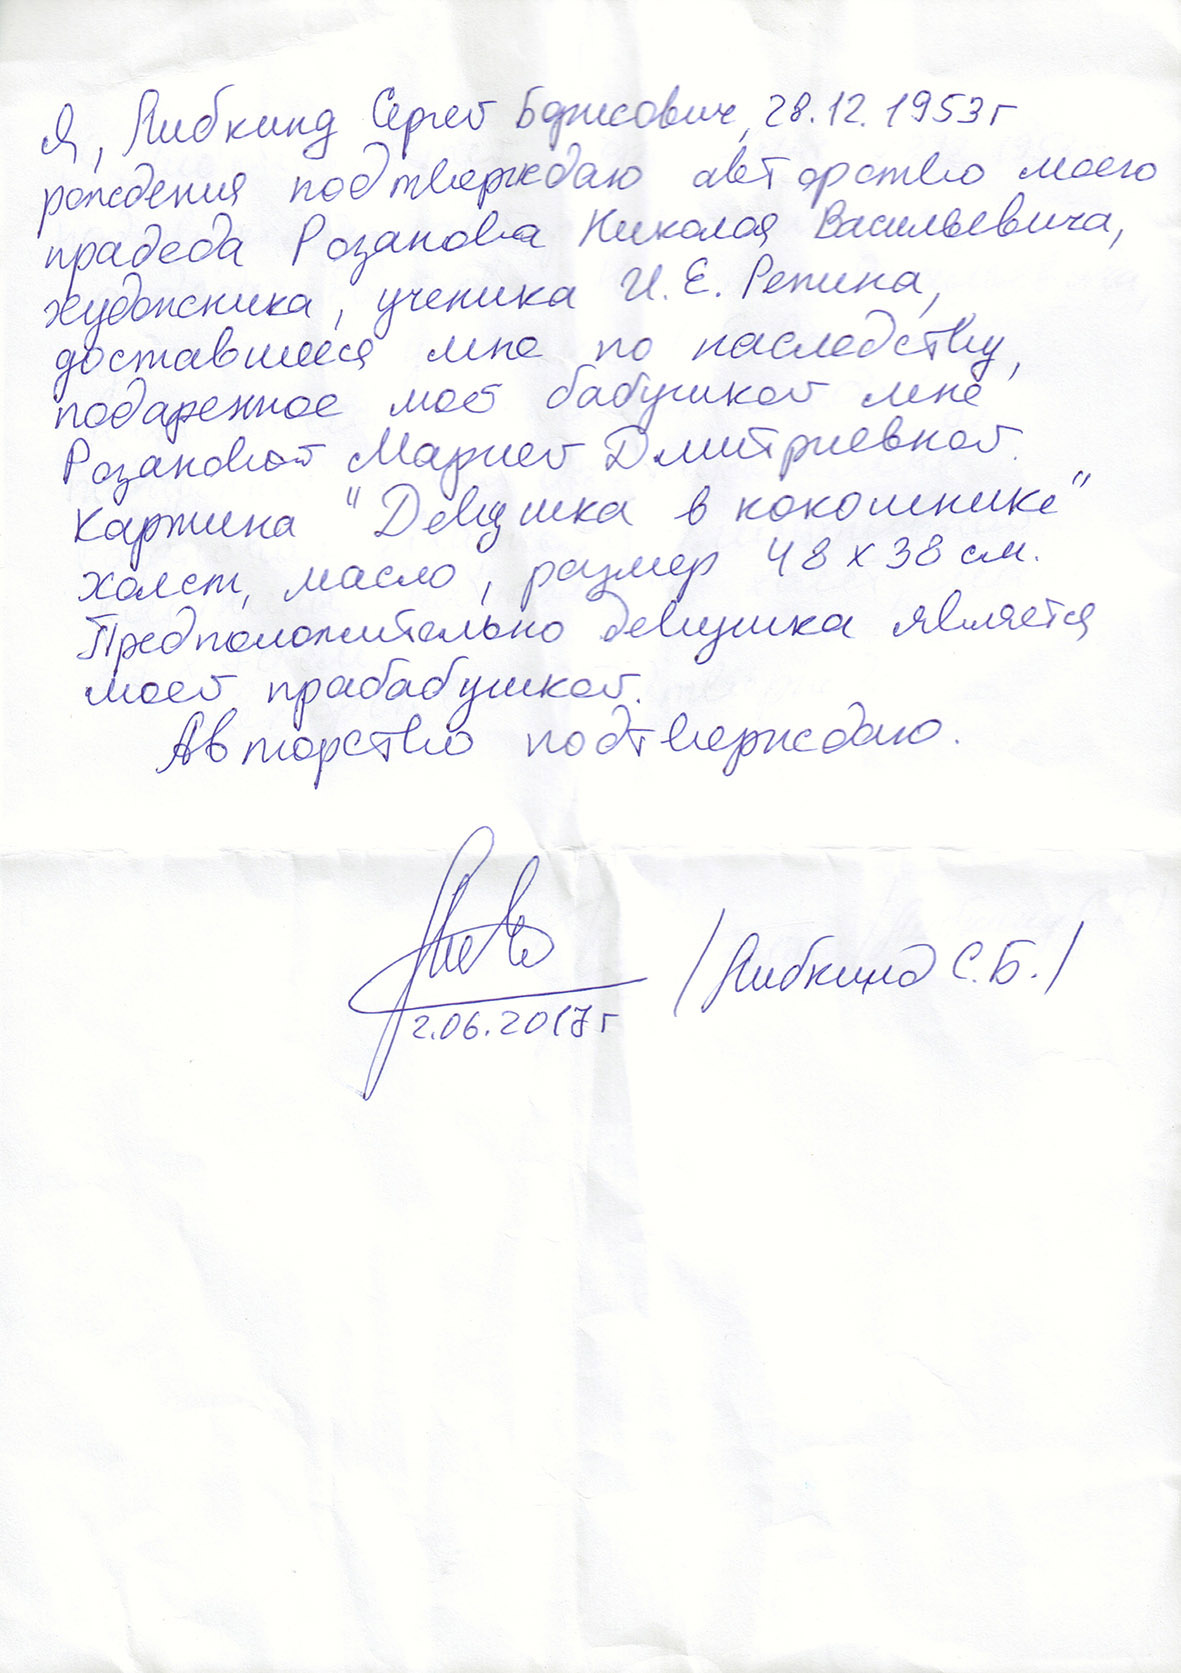 Я, Либкинд Сергей Борисович, 28.12.1953г
рождения подтверждаю авторство моего
прадеда Розанова Николая Васильевича,
художника, ученика И.Е. Репина,
доставшееся мне по наследству,
подаренное моей бабушкой мне
Розановой Марией Дмитриевной.
Картина "Девушка в кокошнике"
холст, масло, размер 48 х 38 см.
Предположительно девушка является
моей прабабушкой.
Авторство подтверждаю.
/Либкинд С.Б./
2.06.2017г